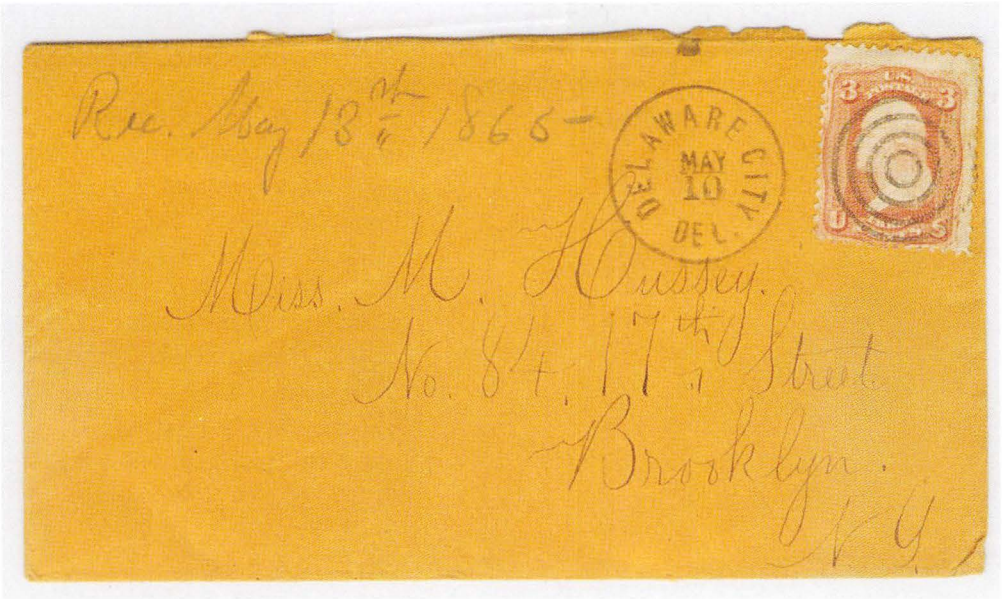 Rec. May 13th 1865 -
DELAWARE CITY
MAY
10
DEL.
3 U.S. 3
POSTAGE
U S
Miss. M. Hussey.
No. 84. 17th Street
Brooklyn.
N. Y.